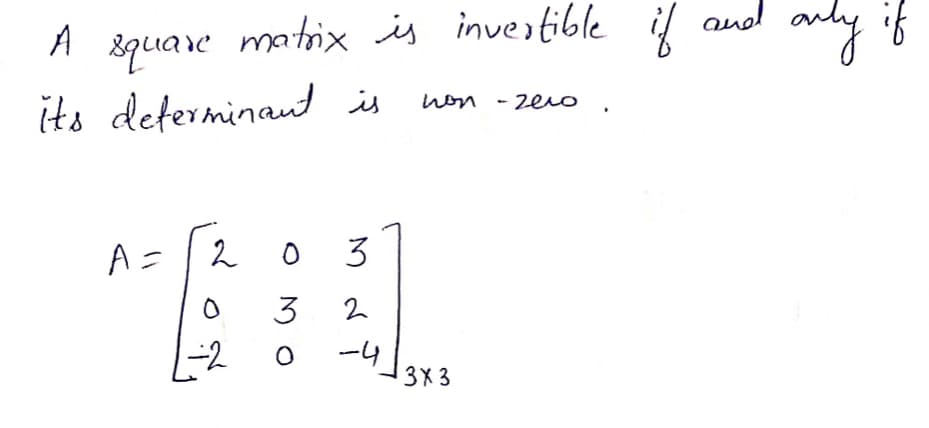 A square matrix is invertible if and only if
its determinant is non-zero.
A = [ 2 0 3
0 3 2
-2 0 -4 ] 3×3